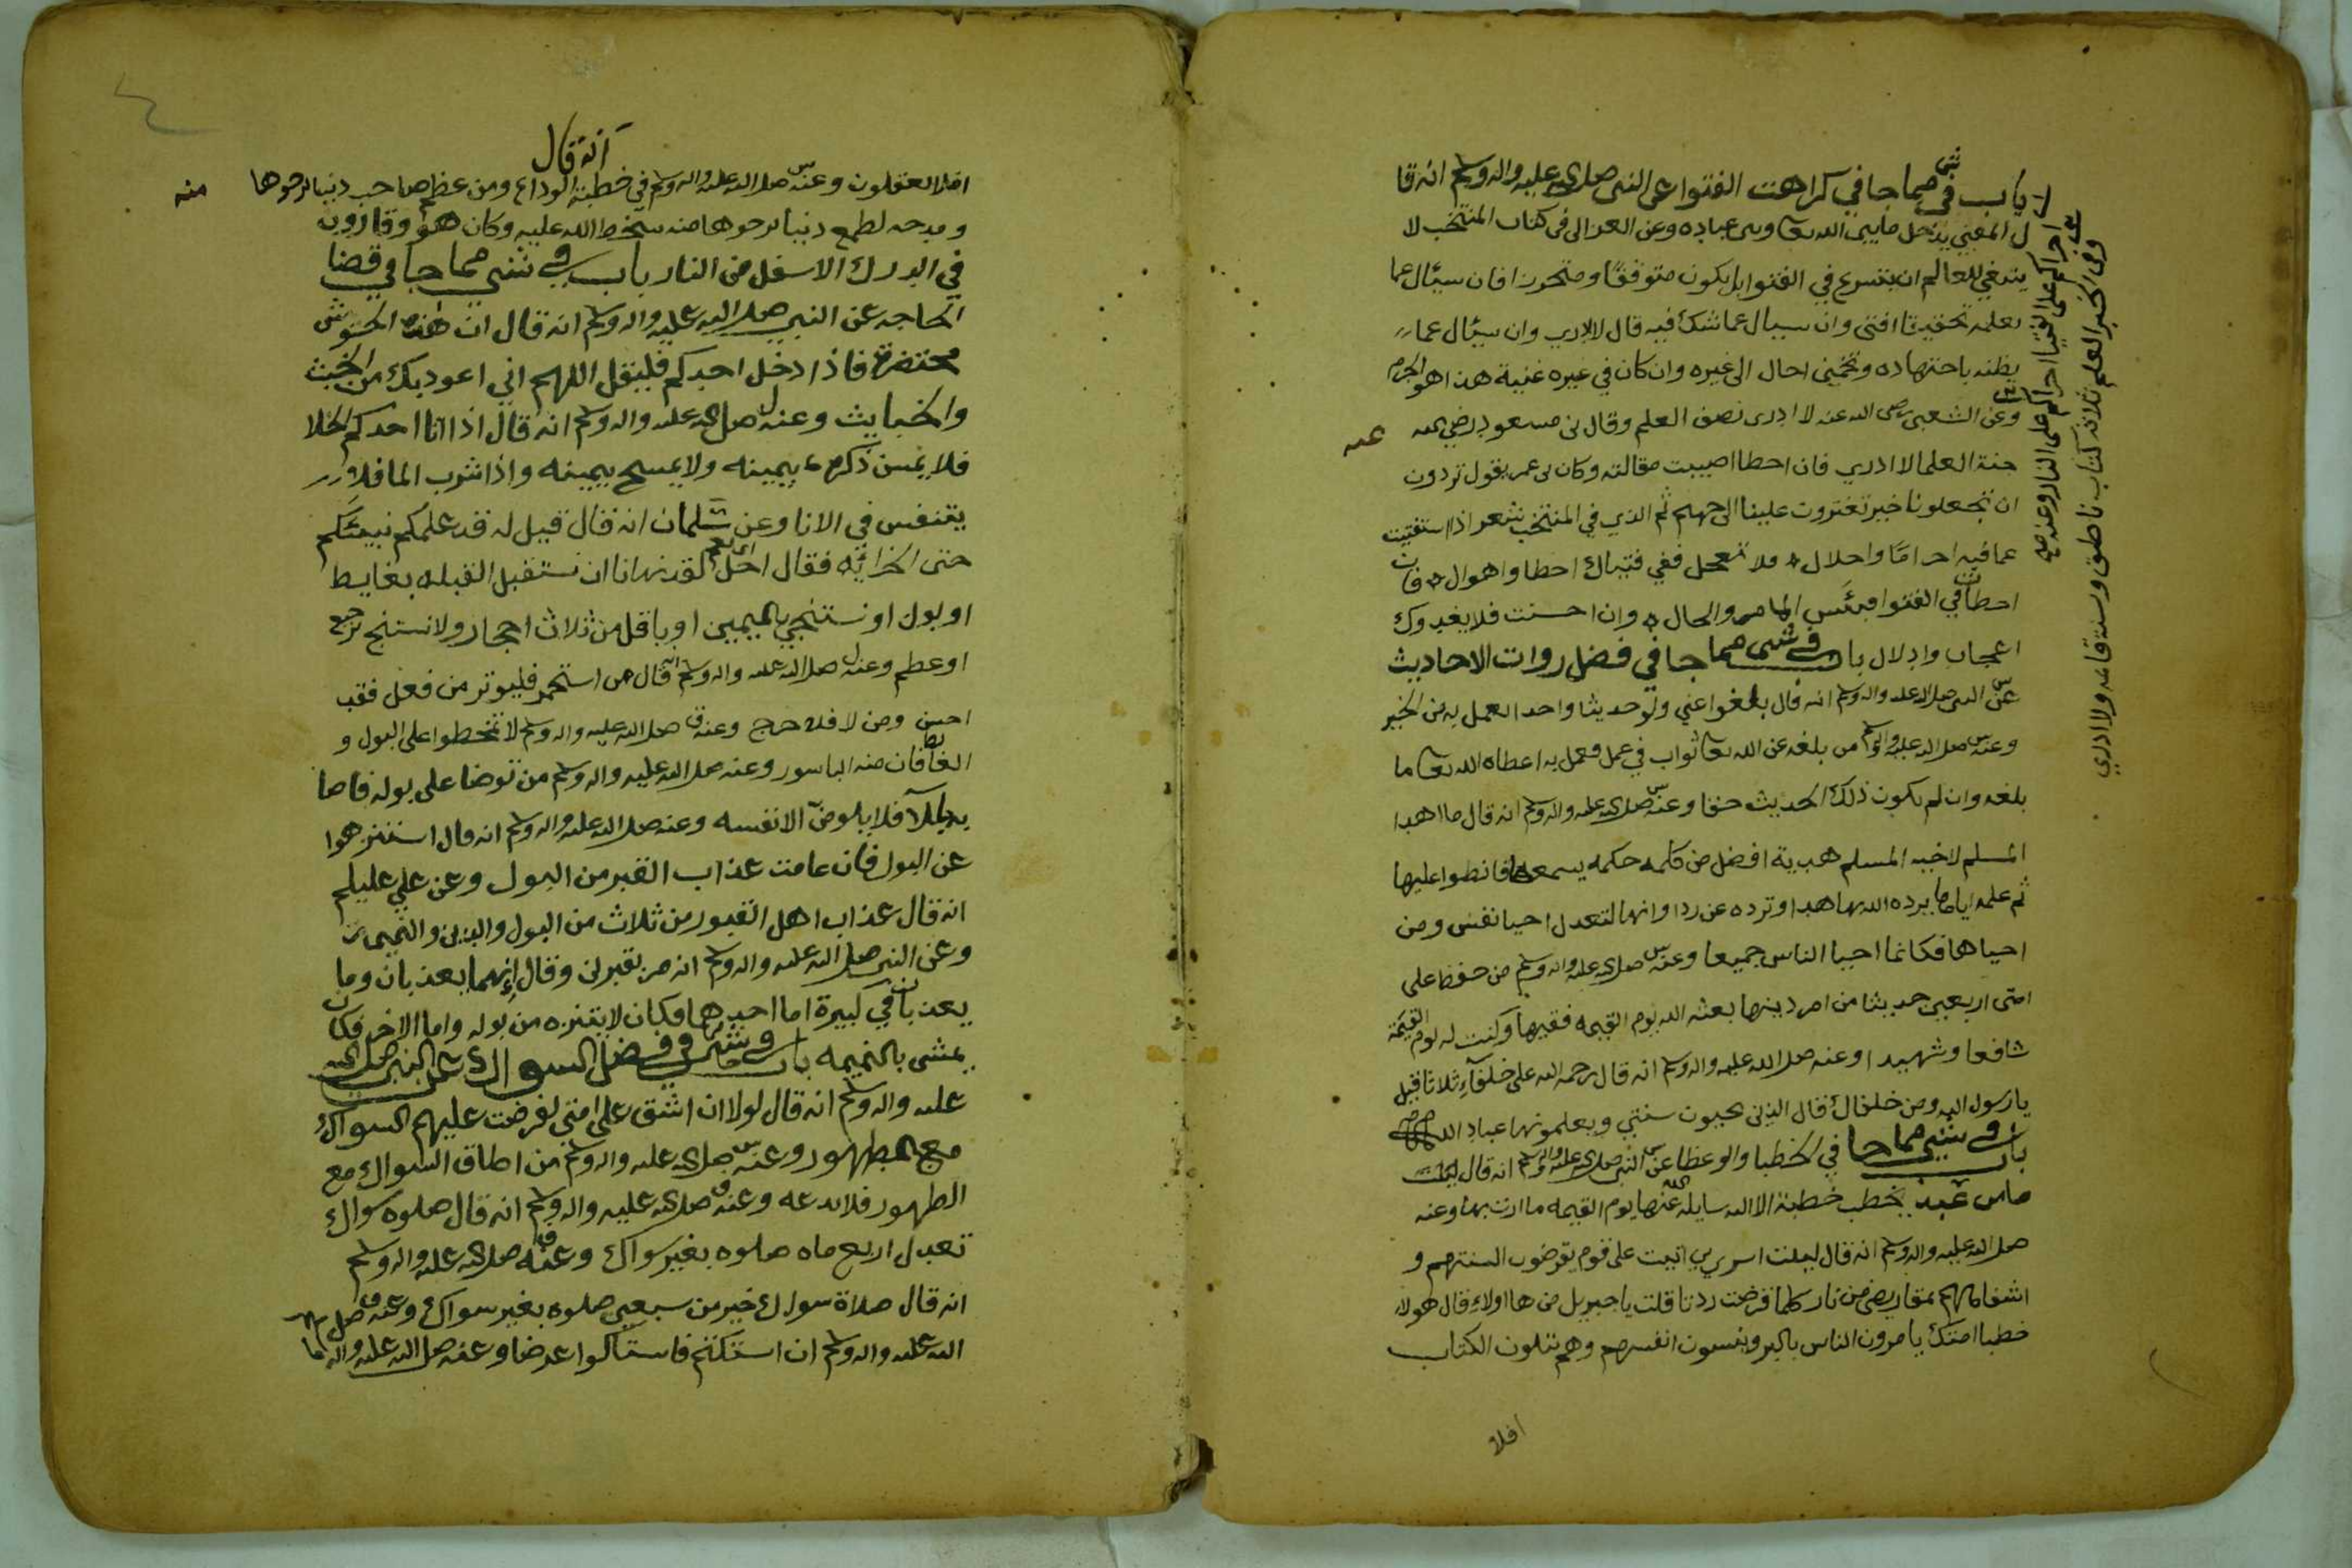 ل باب في شي مما جا في كراهت الفتوا عن النبي صلى الله عليه واله وسلم انه قا
ل المفتي يدخل ما بين الله تعا وبين عباده وعن الغزالي في كتاب المنتخب لا
ينبغي للعالم ان يتسرع في الفتوا بل يكون متوقفا ومتحرزا فان سيال عما
يعلمه تحقيقا افتى وان سيال عما شك فيه قال لا ادري وان سيال عما
يظنه باجتهاده وتخميني احال الى غيره وان كان في غيره غنية هذا هو الحزم
وعن الشعبي رضي الله عنه لا ادري نصف العلم وقال بن مسعود رضي الله عنه
جنة العلما لا ادري فان اخطا اصيبت مقالته وكان بن عمر يقول تردون
ان تجعلونا خبر تعبرون علينا الى جهنم ثم الذي في المنتخب شعر اذا استفتيت
عما فيه احراما واحلال ولا تعجل ففي فتياك اخطا واهوال فان
اخطات في الفتوا فبئس والحال وان احسنت فلا يغدوك
اعجاب وادلال باب في شي مما جا في فضل روات الاحاديث
عن النبي صلى الله عليه واله وسلم انه قال بلغوا عني ولو حديثا واحد العمل به من الخير
وعنه صلى الله عليه واله وسلم من بلغه عن الله تعا ثواب في عمل فعمل به اعطاه الله تعا ما
بلغه وان لم يكون ذلك الحديث حقا وعنه صلى الله عليه واله وسلم انه قال ما اهدا
المسلم لاخيه المسلم هدية افضل من كلمه حكمه يسمعها فانطوا عليها
ثم علمه اياها يرده الله بها هدا او ترده عن ردا وانها لتعدل احيا نفس ومن
احياها فكانما احيا الناس جميعا وعنه صلى الله عليه واله وسلم من حفظ على
امتى اربعين حديثا من امر دينها بعثه الله يوم القيمه فقيها وكنت له يوم القيمة
شافعا وشهيدا وعنه صلى الله عليه واله وسلم انه قال رحمه الله على خلفآء ثلاثا قيل
يا رسول الله ومن خلفاك قال الذين يحيون سنتي ويعلمونها عباد الله
باب في شي مما جا في الخطبا والوعظا عن النبي صلى الله عليه واله وسلم انه قال
ما من عبد يخطب خطبة الا الله سايله عنها يوم القيمه ما اردت بها وعنه
صلى الله عليه واله وسلم انه قال ليلت اسري بي اتيت على قوم تقرض السنتهم و
اشفاههم بمقاريض من نار كلما قرضت ردت قلت يا جبريل من هااولاء قال هولا
خطبا امتك يامرون الناس بالبر وينسون انفسهم وهم يتلون الكتاب
افلا
اجراكم على الفتيا اجراكم على النار وعنه صلى
وفي الخبر العلم ثلاثه كتاب ناطق وسنة قائمه ولا ادري
انه قال
افلا تعقلون وعنه صلى الله عليه واله وسلم في خطبة الوداع ومن عظم صاحب دنيا يرجوها منه
ومدحه لطمع دنيا يرجوها منه سخط الله عليه وكان هو وقارون
في الدرك الاسفل من النار باب في شي مما جا في قضا
الحاجه عن النبي صلى الله عليه واله وسلم انه قال ان هذه الحشوش
محتضرة فاذا دخل احدكم فليقل اللهم اني اعوذ بك من الخبث
والخبايث وعنه صلى الله عليه واله وسلم انه قال اذا اتا احدكم الخلا
فلا يمسن ذكره بيمينه ولا يمسح بيمينه واذا شرب الما فلا
يتنفس في الانا وعن سلمان انه قال قيل له قد علمكم نبيئكم
حتى الخرائه فقال اجل لقد نهانا ان نستقبل القبله بغايط
او بول او نستنجي باليمين او باقل من ثلاث احجار ولا نستنج برجيع
او عظم وعنه صلى الله عليه واله وسلم انه قال من استجمر فليوتر من فعل فقد
احسن ومن لا فلا حرج وعنه صلى الله عليه واله وسلم لا تخطوا على البول و
الغايط فان منه الباسور وعنه صلى الله عليه واله وسلم من توضا على بوله فاصا
به بللا فلا يلومن الا نفسه وعنه صلى الله عليه واله وسلم انه قال استنزهوا
عن البول فان عامت عذاب القبر من البول وعن علي عليلم
انه قال عذاب اهل القبور من ثلاث من البول والدين والنميمه
وعن النبي صلى الله عليه واله وسلم انه مر بقبرين وقال انهما يعذبان وما
يعذبان في كبيرة اما احدهما فكان لا يتنزه من بوله واما الاخر فكان
يمشي بالنميمه باب في شي في فضل السواك عن النبي صلى الله
عليه واله وسلم انه قال لولا ان اشق على امتى لفرضت عليهم السواك
مع الطهور وعنه صلى الله عليه واله وسلم من اطاق السواك مع
الطهور فلا يدعه وعنه صلى الله عليه واله وسلم انه قال صلوه بسواك
تعدل اربع ماه صلوه بغير سواك وعنه صلى الله عليه واله وسلم
انه قال صلاة بسواك خير من سبعين صلوه بغير سواك وعنه صلى
الله عليه واله وسلم ان استكتم فاستاكوا عرضا وعنه صلى الله عليه واله